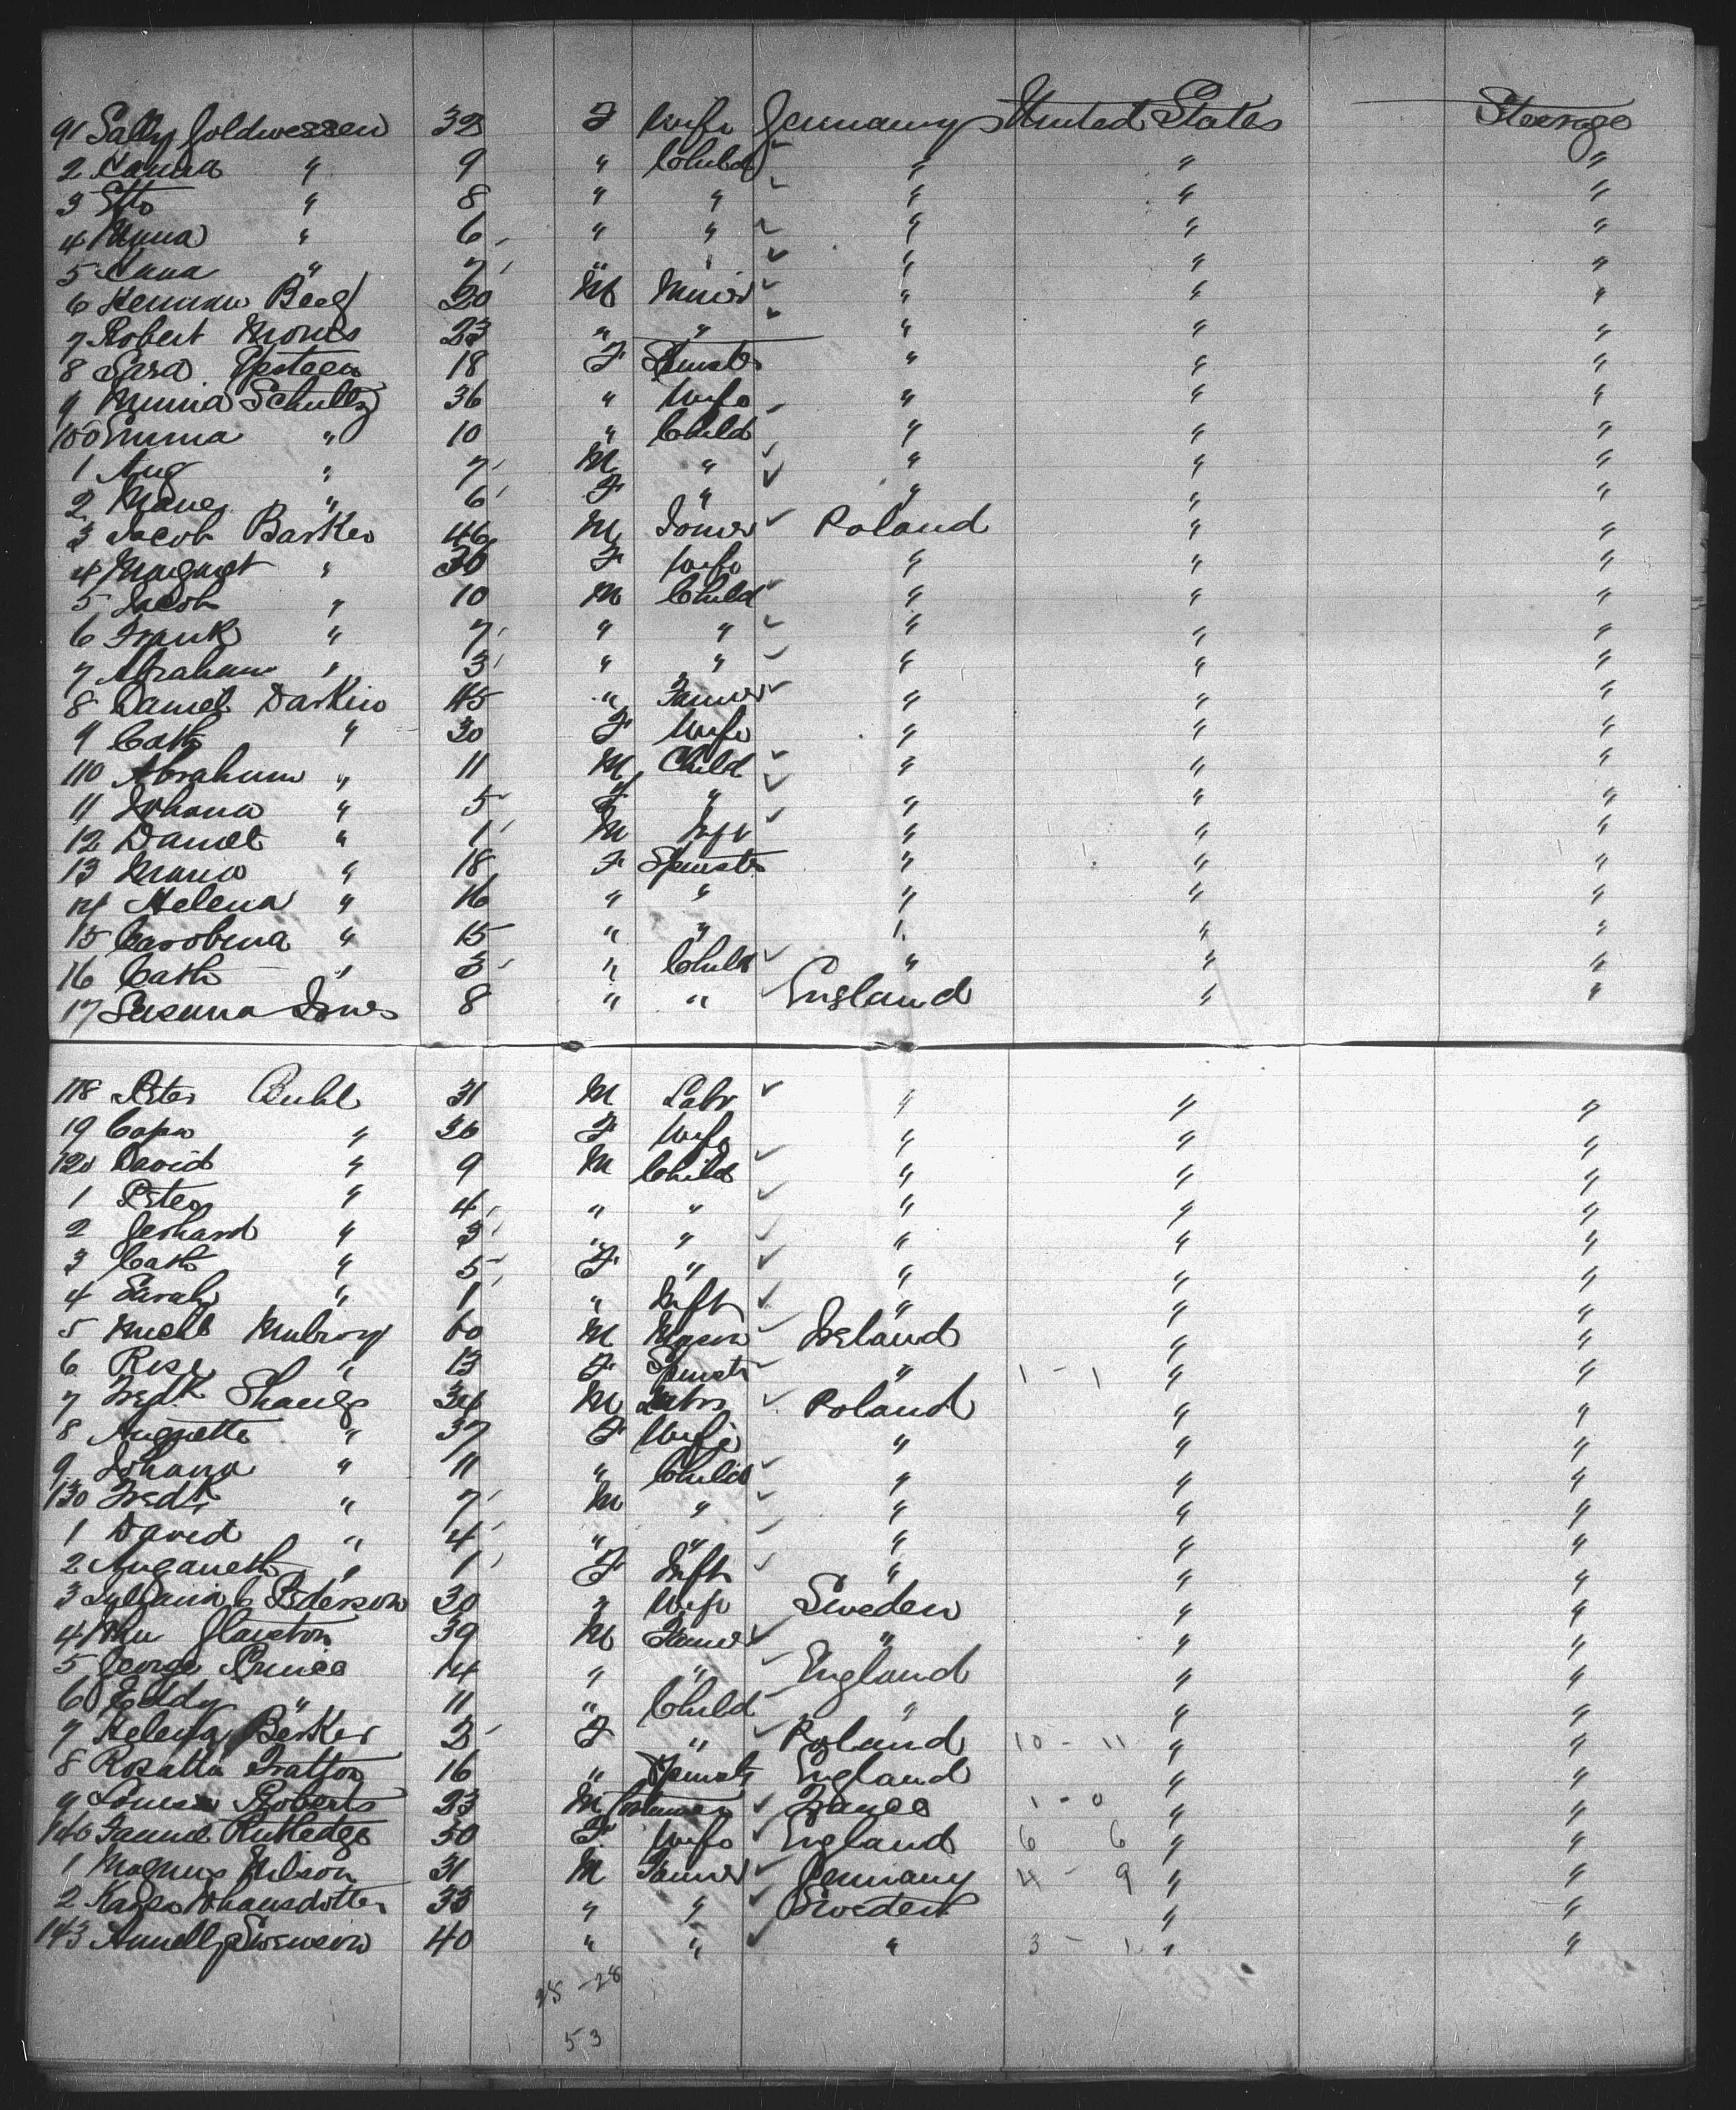 91 Sally Goldwessen 32 F Wife Germany United States Steerage
2 " 9 " Child " " "
3 Otto " 8 " " " " "
4 Minna " 6 " " " " "
5 Anna " 7 " " " " "
6 Herman Berg 20 M Miner " " "
7 Robert Morris 23 " " " " "
8 Sara Epsteen 18 F Spinstr " " "
9 Minna Schultz 36 " Wife " " "
100 Emma " 10 " Child " " "
1 Aug " 7 M " " " "
2 " 6 F " " " "
3 Jacob Barker 46 M Poland " "
4 Margaret " 30 F Wife " " "
5 Jacob " 10 M Child " " "
6 Frank " 7 " " " " "
7 Abraham " 3 " " " " "
8 Daniel Darkin 45 " Farmer " " "
9 Cath " 30 F Wife " " "
110 Abraham " 11 M Child " " "
11 Johana " 5 F " " " "
12 Daniel " 1 M Inft " " "
13 " 18 F Spinstr " " "
14 Helena " 16 " " " " "
15 Carolina " 15 " " " " "
16 Cath " 3 " Child " " "
17 Susanna Jones 8 " " England " "
118 Peter Buhl 31 M Labr " " "
19 " 30 F Wife " " "
120 David " 9 M Child " " "
1 Peter " 4 " " " " "
2 Gerhard " 3 " " " " "
3 Cath " 5 F " " " "
4 Sarah " 1 " Inft " " "
5 Michl Mulroy 60 M Mason Ireland " "
6 Rose " 13 F Spinstr " 1 - 1 " "
7 Fredk 34 M Labr Poland " "
8 " 37 F Wife " " "
9 Johana " 11 " Child " " "
130 Fredk " 7 M " " " "
1 David " 4 " " " " "
2 " 1 F Inft " " "
3 C Pederson 30 " Wife Sweden " "
4 39 M Farmer " " "
5 George Prince 14 " " England " "
6 Eddy " 11 " Child " " "
7 Helena Barker 2 F " Poland 10 - 11 " "
8 Rosatta Fratton 16 " Spinstr England " "
9 Louis Roberts 23 M France 1 - 0 " "
140 Fannie Rutledge 50 F Wife England 6 6 " "
1 Magnus Nilson 31 M Farmer Germany 4 - 9 " "
2 33 " " Sweden " "
143 Swenson 40 " " " 3 - 1 " "
25 - 28
53